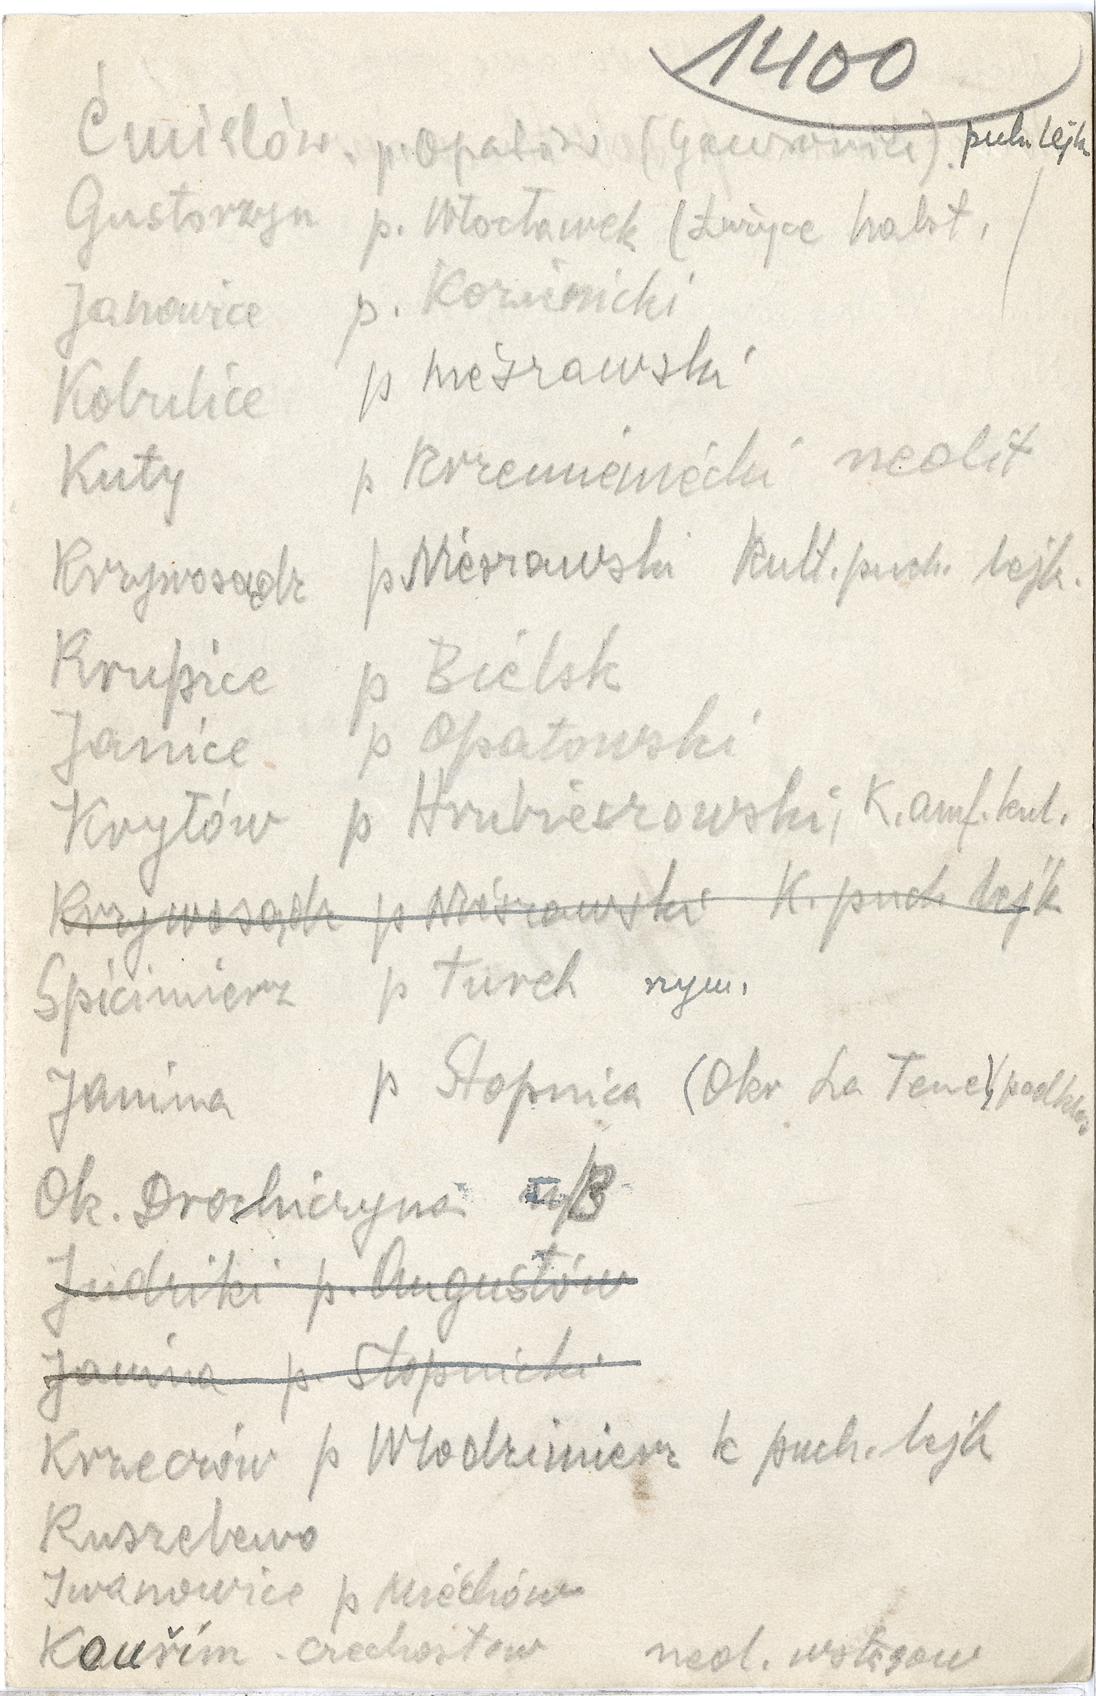 1400
Ćmielów. p. Opatów (Gawroniec). puh. lejk.
Gustorzyn p. Włocławek (żużyce halst.
Janowice p. Kozienicki
Kobulice p Nieszawski
Kuty p Krzemieniecki neolit
Krzywosądz p Nieszawski Kult. puch. lejk.
Krupice p Bielsk
Janice p Opatowski
Kryłów p Hrubieszowski, K. amf. kul.
Krzywosądz p Nieszawski K. puch lejk
Spicimierz p Turek rzym.
Janina p Stopnica (Okr La Tene)
Ok. Drohiczyna n/B
p. Augustów
Janina p Stopnicki
Krzeczów p Włodzimierz k puch. lejk
Ruszelewo
Iwanowice p Miechów
Kouřim - czechosłow neol. wstęgow